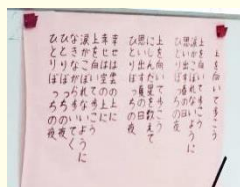 上を向いて歩こう
上を向いて歩こう
涙がこぼれないように
思い出す春の日
ひとりぼっちの夜
上を向いて歩こう
にじんだ星を数えて
思い出す夏の日
ひとりぼっちの夜
幸せは雲の上に
幸せは空の上に
上を向いて歩こう
涙がこぼれないように
なきながら歩いてく
ひとりぼっちの夜
ひとりぼっちの夜